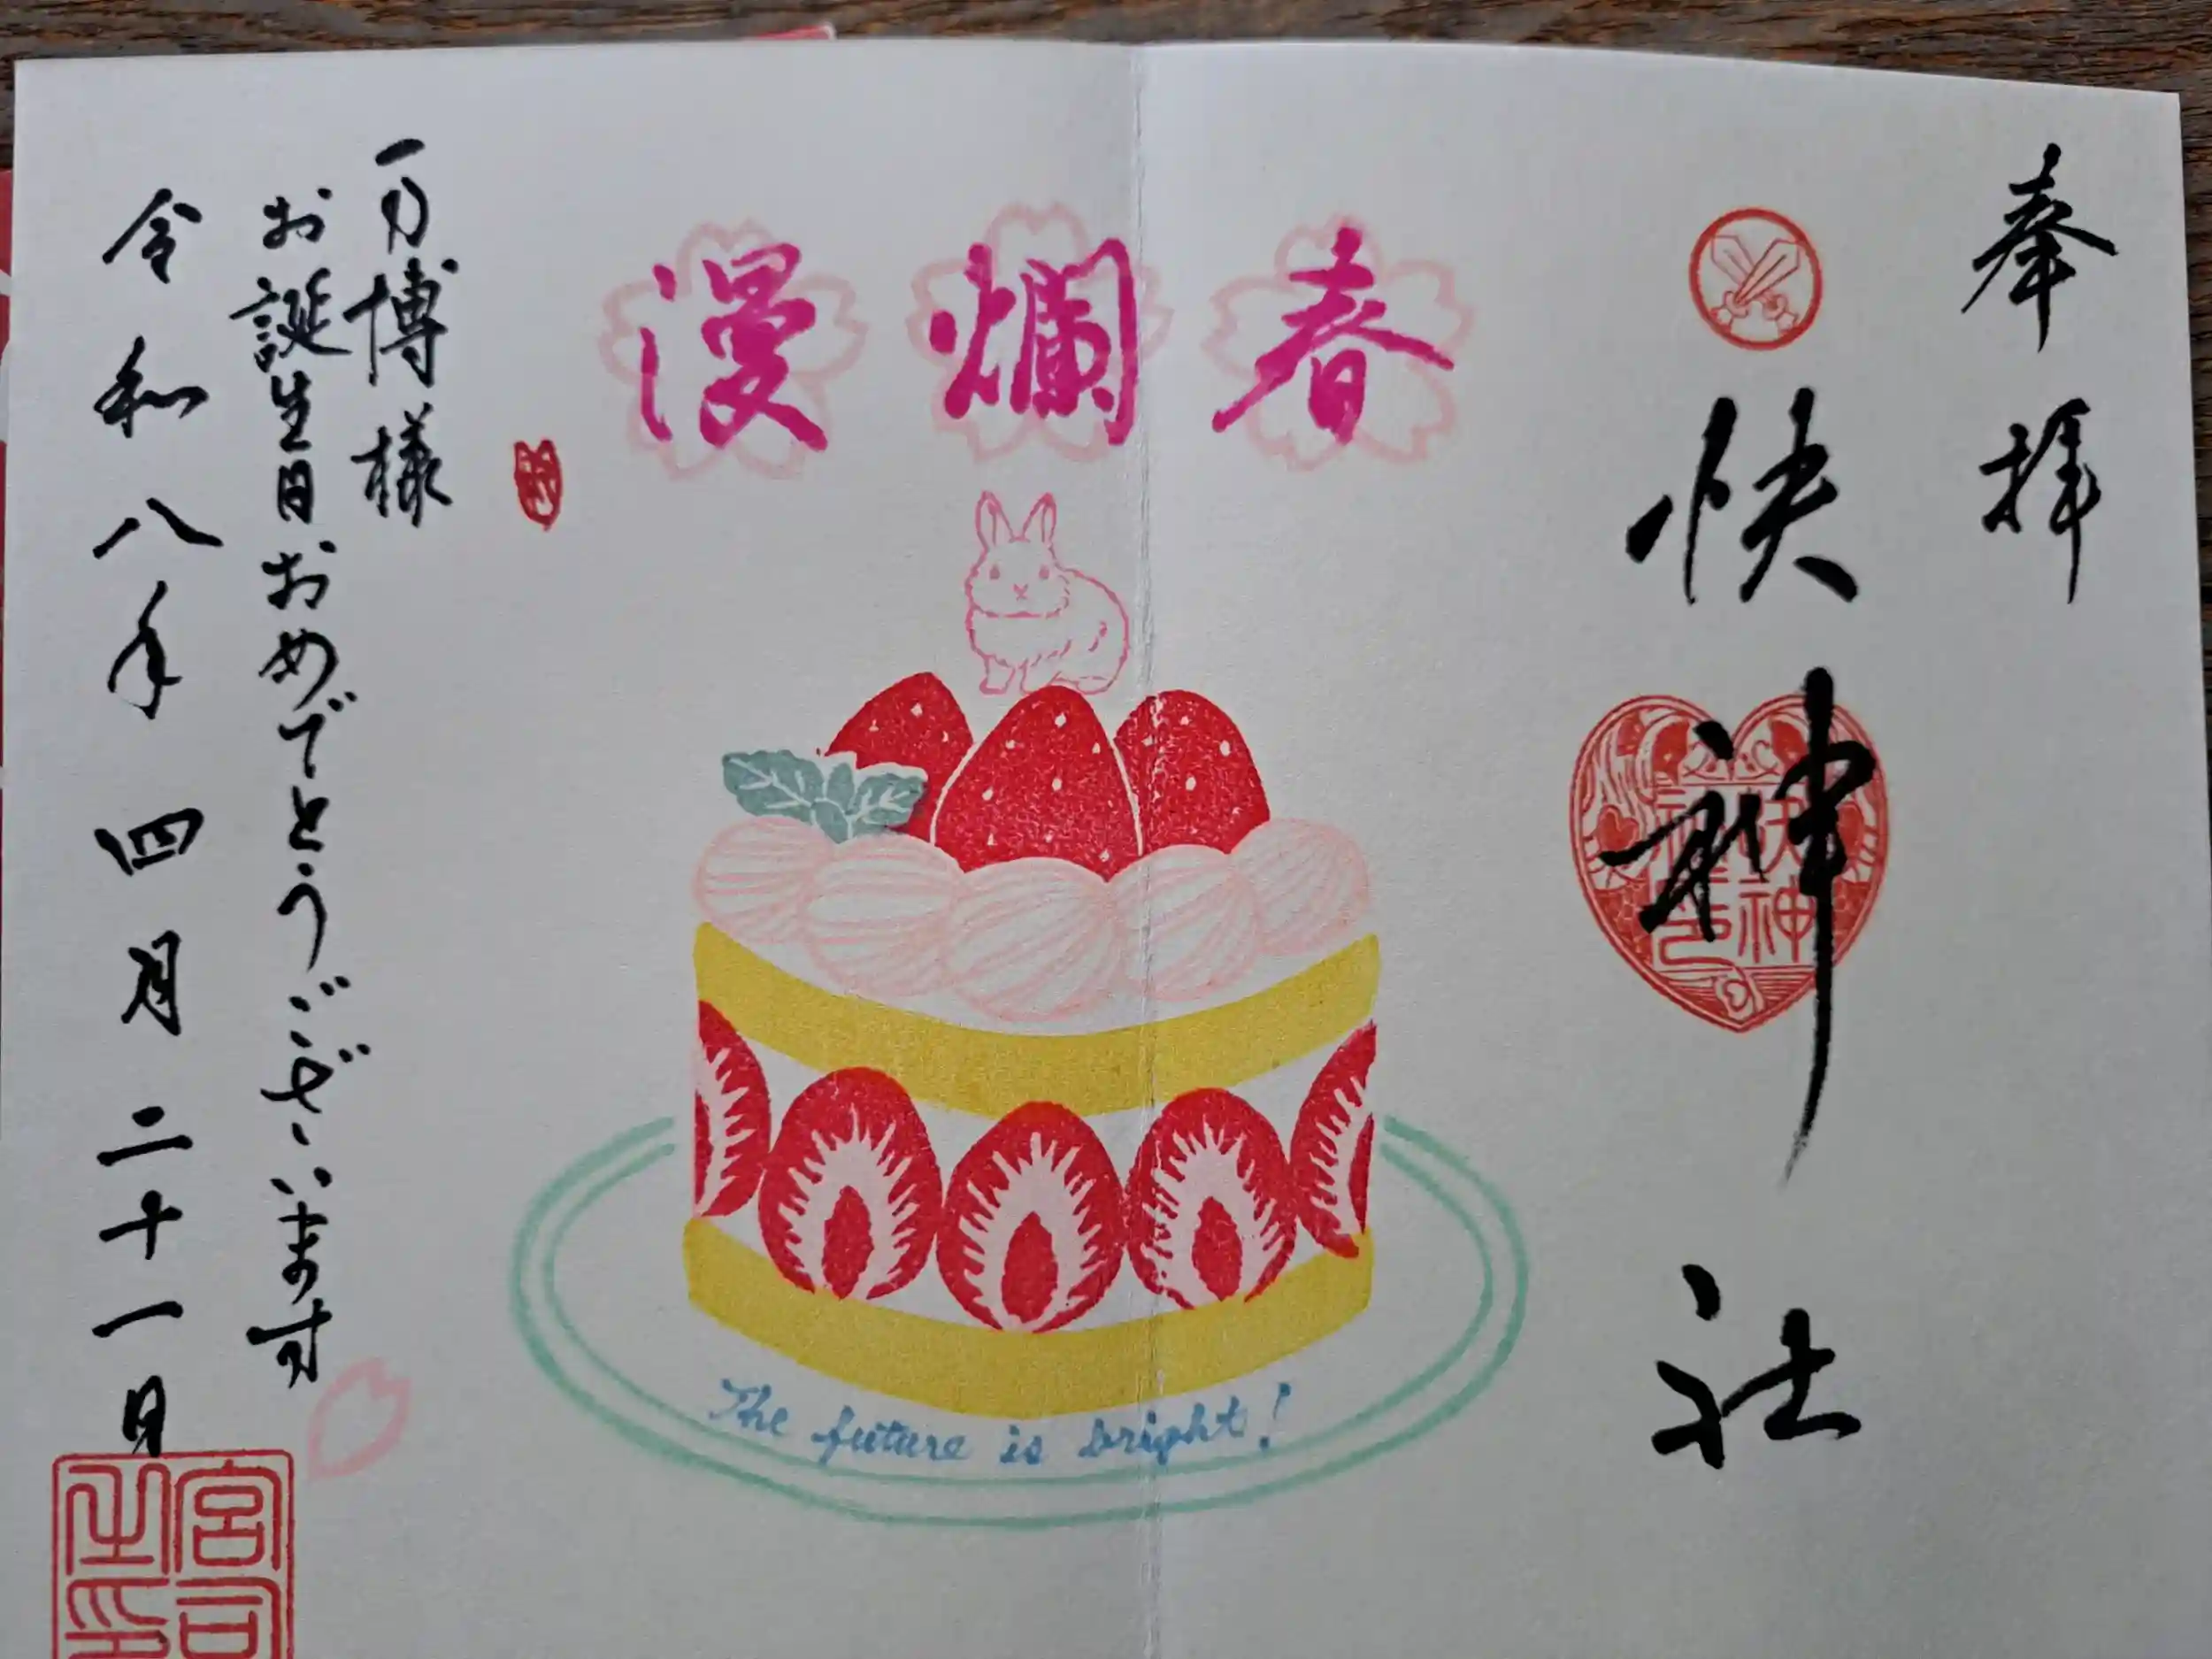 奉拝
快神社
春爛漫
The future is bright!
博様
お誕生日おめでとうございます
令和八年四月二十一日
宮司之印